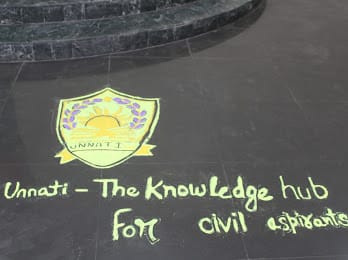 UNNATI
Unnati - The Knowledge hub
For civil aspirants